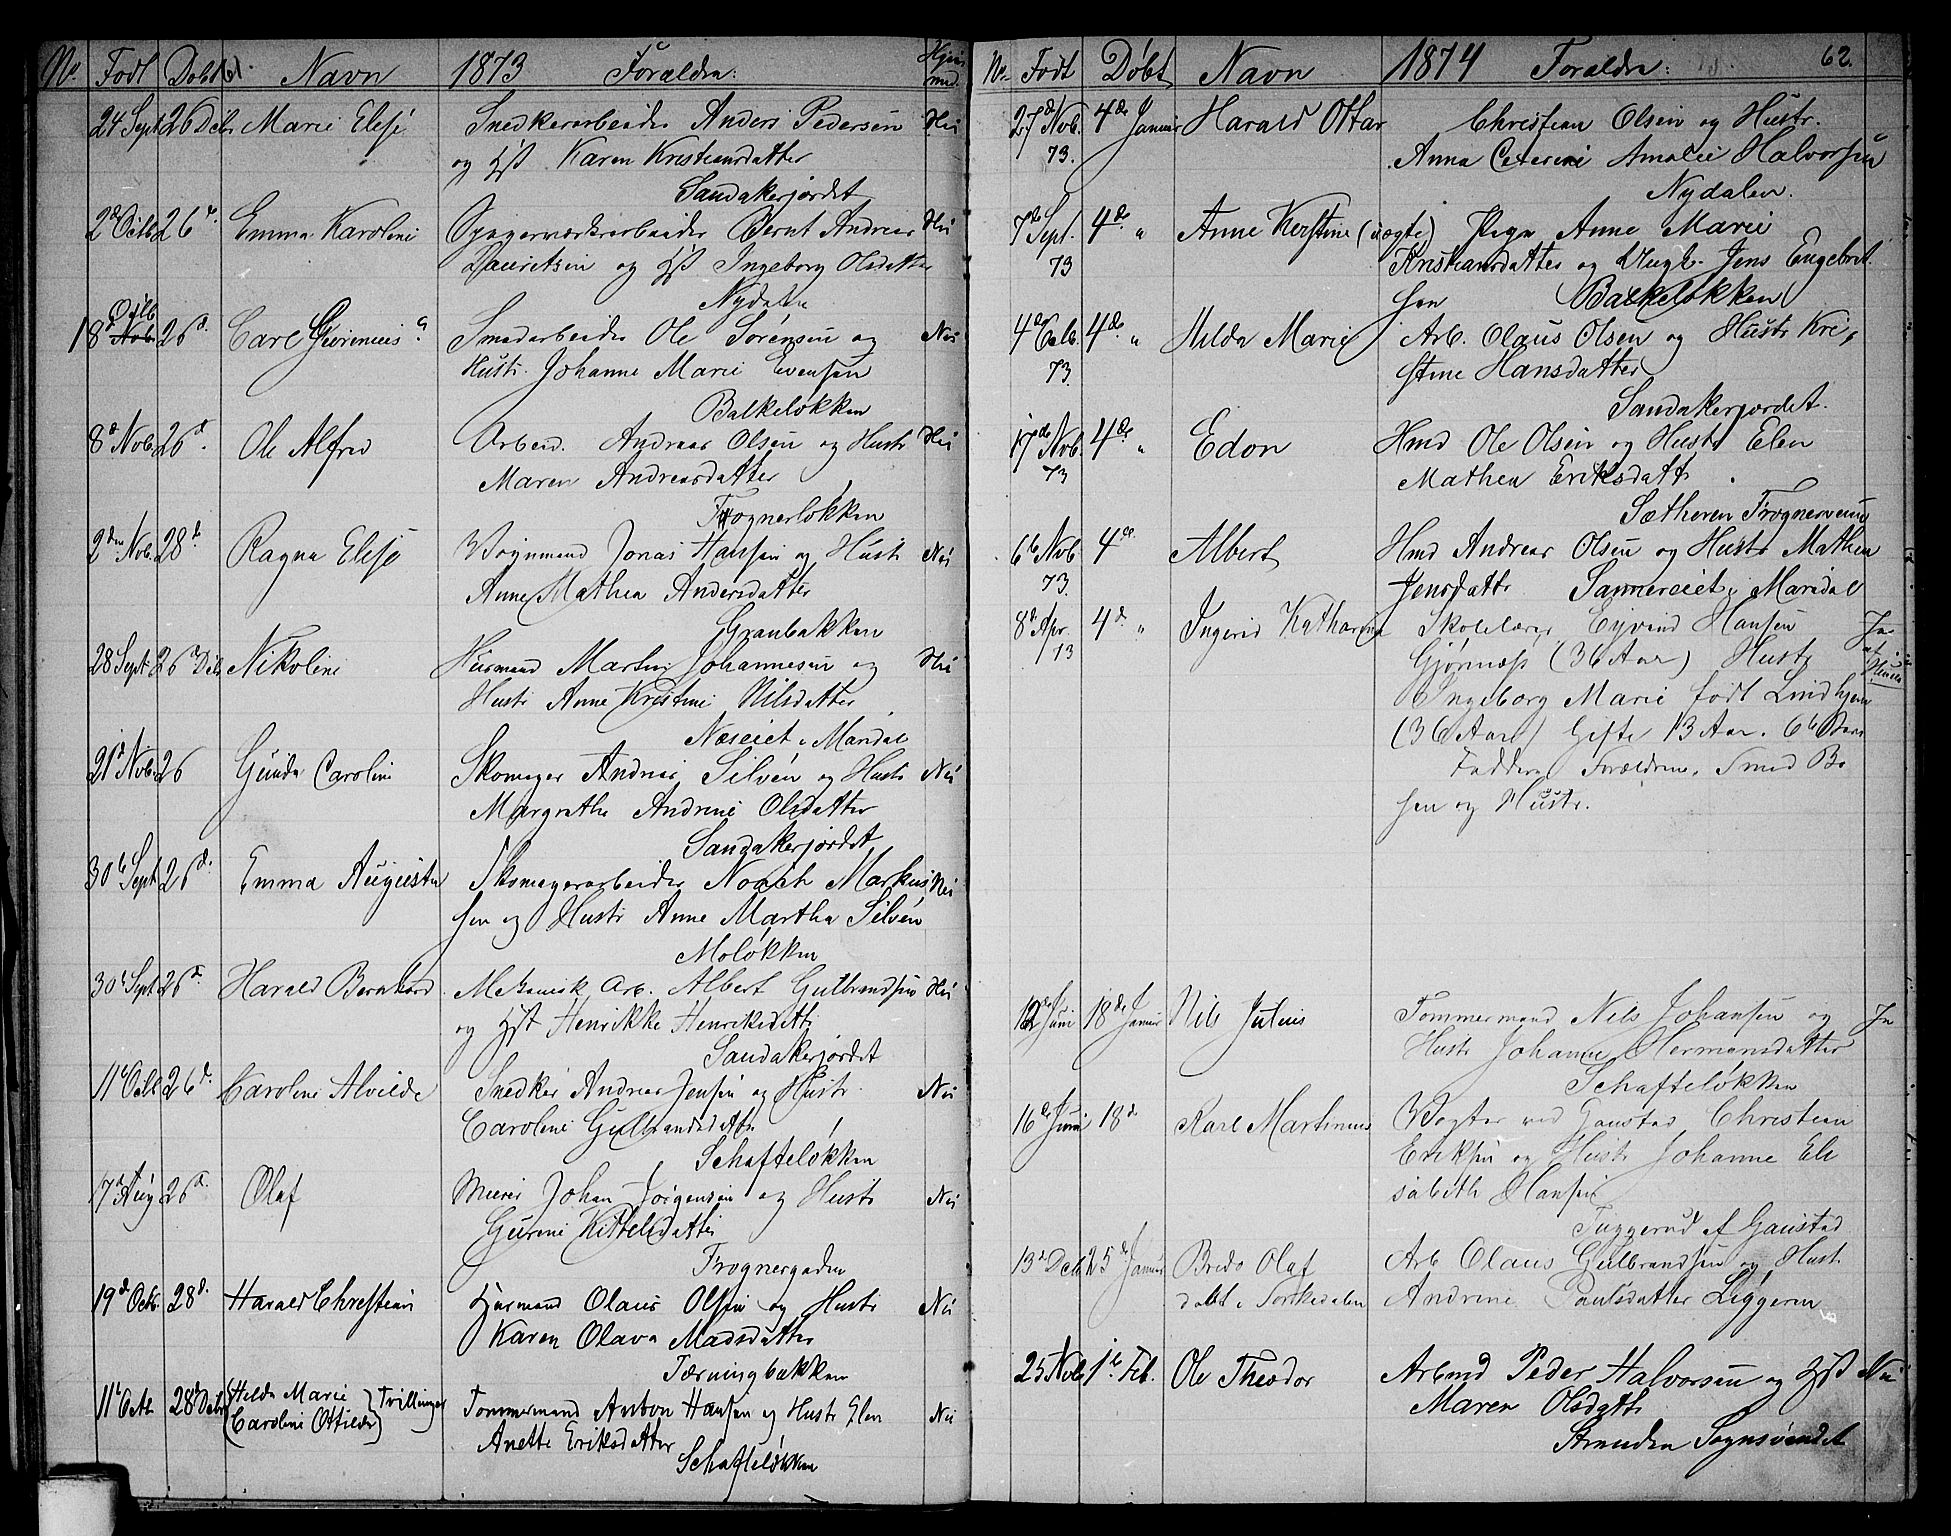 No. Født Døbt Navn 1873 Forældre: Hjemmed.
24 Sept 26 Dcb Marie Elise Snedkerarbeider Anders Pedersen Nei
og Hst Karen Kristiansdatter
Sandakerjordet
2d Octb 26d Emma Karoline Spigerværksarbeider Bernt Andreas Nei
Lauritsen og Hst Ingeborg Olsdatter
Nydalen
Octb
18d Nob. 26d. Carl Smedarbeider Ole Sørensen og Nei
Hustr. Johanne Marie Evensen
Balkeløkken
8d Nob. 26d. Ole Alfred Arbeid. Andreas Olsen og Hustr Nei
Maren Andreasdatter
Frognerløkken
2den Nob. 28d Ragna Elise Vognmand Jonas Hansen og Hustr Nei
Anne Mathea Andersdatter
Granbakken
28 Sept 26 Dcb Nikoline Husmand Martin Johannesen og Nei
Hustr Anne Kristine Nilsdatter
Næseiet i Maridal
21d Nob. 26 Gunda Caroline Skomager Andreas Silvén og Hustr Nei
Margrethe Andrine Olsdatter
Sandakerjordet
30te Sept 26d. Emma Augusta Skomagerarbeider Noach Markus Nei
sen og Hustr Anne Martha Silvén
Moløkken
30t Sept 26d. Harald Bernhard Mekanisk Arb. Albert Gulbrandsen Nei
og Hst Henrikke Henriksdatt
Sandakerjordet
11t Octb 26d. Caroline Alvilde Snedker Andreas Jensen og Hustr. Nei
Caroline Gulbrandsdatr
Schafteløkken
17d Aug 26d. Olaf Murer Johan Jørgensen og Hustr Nei
Gurine Kittelsdatter
Frognergaden
19d Octb. 28d. Harald Christian Husmand Olaus Olsen og Hustr Nei
Karen Olava Madsdatter
Tærningbakken
11t Octb 28d Dcbr Hilda Marie Caroline Ottilde } Tvillinger Tømmermand Anton Hansen og Hustr Elen Nei
Anette Eriksdatter
Schafteløkken
No. Født Døbt Navn 1874 Forældre: 62.
27d Nob. 4de Januar Harald Ottar Christian Olsen og Hustr.
73. Anna Amalie Halvorsen
Nydalen.
7de Sept. 4de " Anne Kirstine (uægte) Pige Anne Marie
73 Kristiansdatter og Ungk. Jens Engebret
sen Balkeløkken
4d Octb. 4de " Hilda Marie Arb. Olaus Olsen og Hustr Kri-
73. stine Hansdatter
Sandakerjordet.
17de Nob. 4de. " Edon Hmd Ole Olsen og Hustr Elen
73 Mathea Eriksdattr
Sætheren Frognerseteren
6te Nob. 4de. Albert Hmd Andreas Olsen og Hustr Mathea
73. Jensdattr Sannereiet i Maridal
8d Apr. 4d. " Ingerid Katharina Skolelærer Eyvind Hansen
73 Gjørnæss (36 Aar) Hustr
Ingeborg Marie født Lindhjem
(36 Aar) Gifte 13 Aar. 6te Barn
Faddere Forældrene, Smed Bo
sen og Hustr.
12te Juni 18de Januar Nils Julius Tømmermand Nils Johansen og Ja
Hustr Johanne Hermansdatter
Schafteløkken
16de Juni 18d Karl Martinius Vogter ved Gaustad Christian
Eriksen og Hustr Johanne Eli
sabeth Hansen
Tuggerud af Gaustad
13d Dcb 25d Januar Bredo Olaf Arb Olaus Gulbrandsen og Hustr
døbt i Sørkedalen Andrine Paulsdatter Liggeren
25 Nob 1te Feb. Ole Theodor Arbmd Peder Halvorsen og Hst Nei
Maren Olsdattr
Stranden Sognsvandet